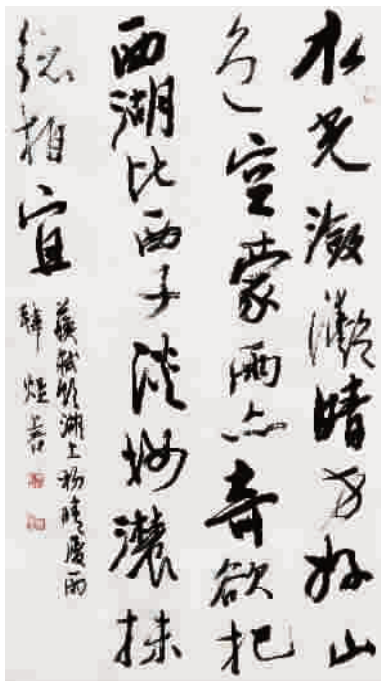 水光瀲灩晴方好山
色空蒙雨亦奇欲把
西湖比西子淡妝濃抹
總相宜
蘇軾飲湖上初晴後雨
韓